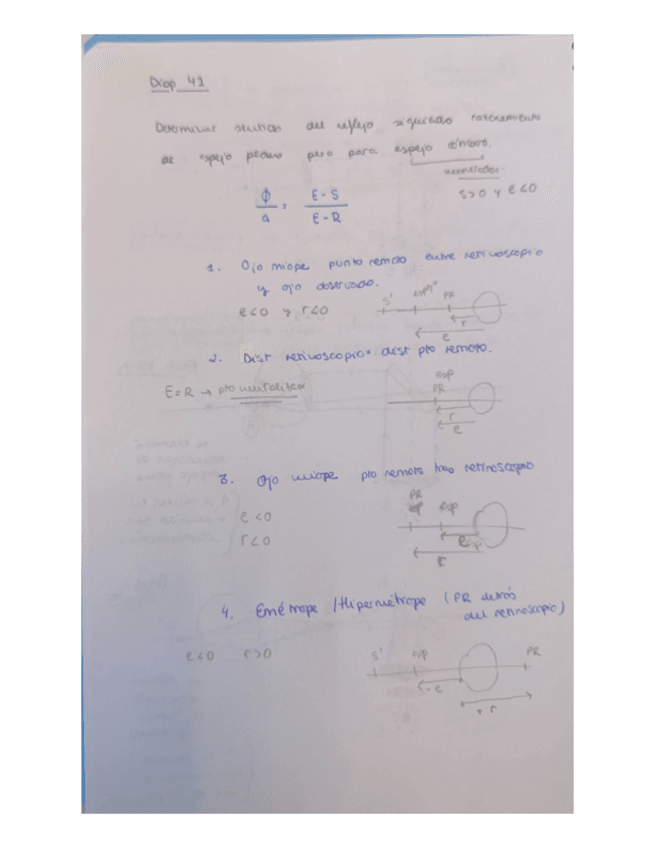 Diap 41
Determinar sentido del reflejo siguiendo razonamiento
de espejo plano pero para espejo cóncavo.
numerador
s>0 y e<0
ϕ/a = E-S/E-R
1. Ojo miope punto remoto entre retinoscopio
y ojo observado.
e<0 y r<0
S' esp PR
r
e
2. Dist retinoscopio = dist pto remoto.
E=R → pto neutralizar
esp
PR
r
e
3. Ojo miope pto remoto tras retinoscopio
e<0
r<0
PR
esp esp
r
4. Emétrope /Hipermétrope (PR detrás
del retinoscopio)
e<0 r>0
S' esp PR
+r